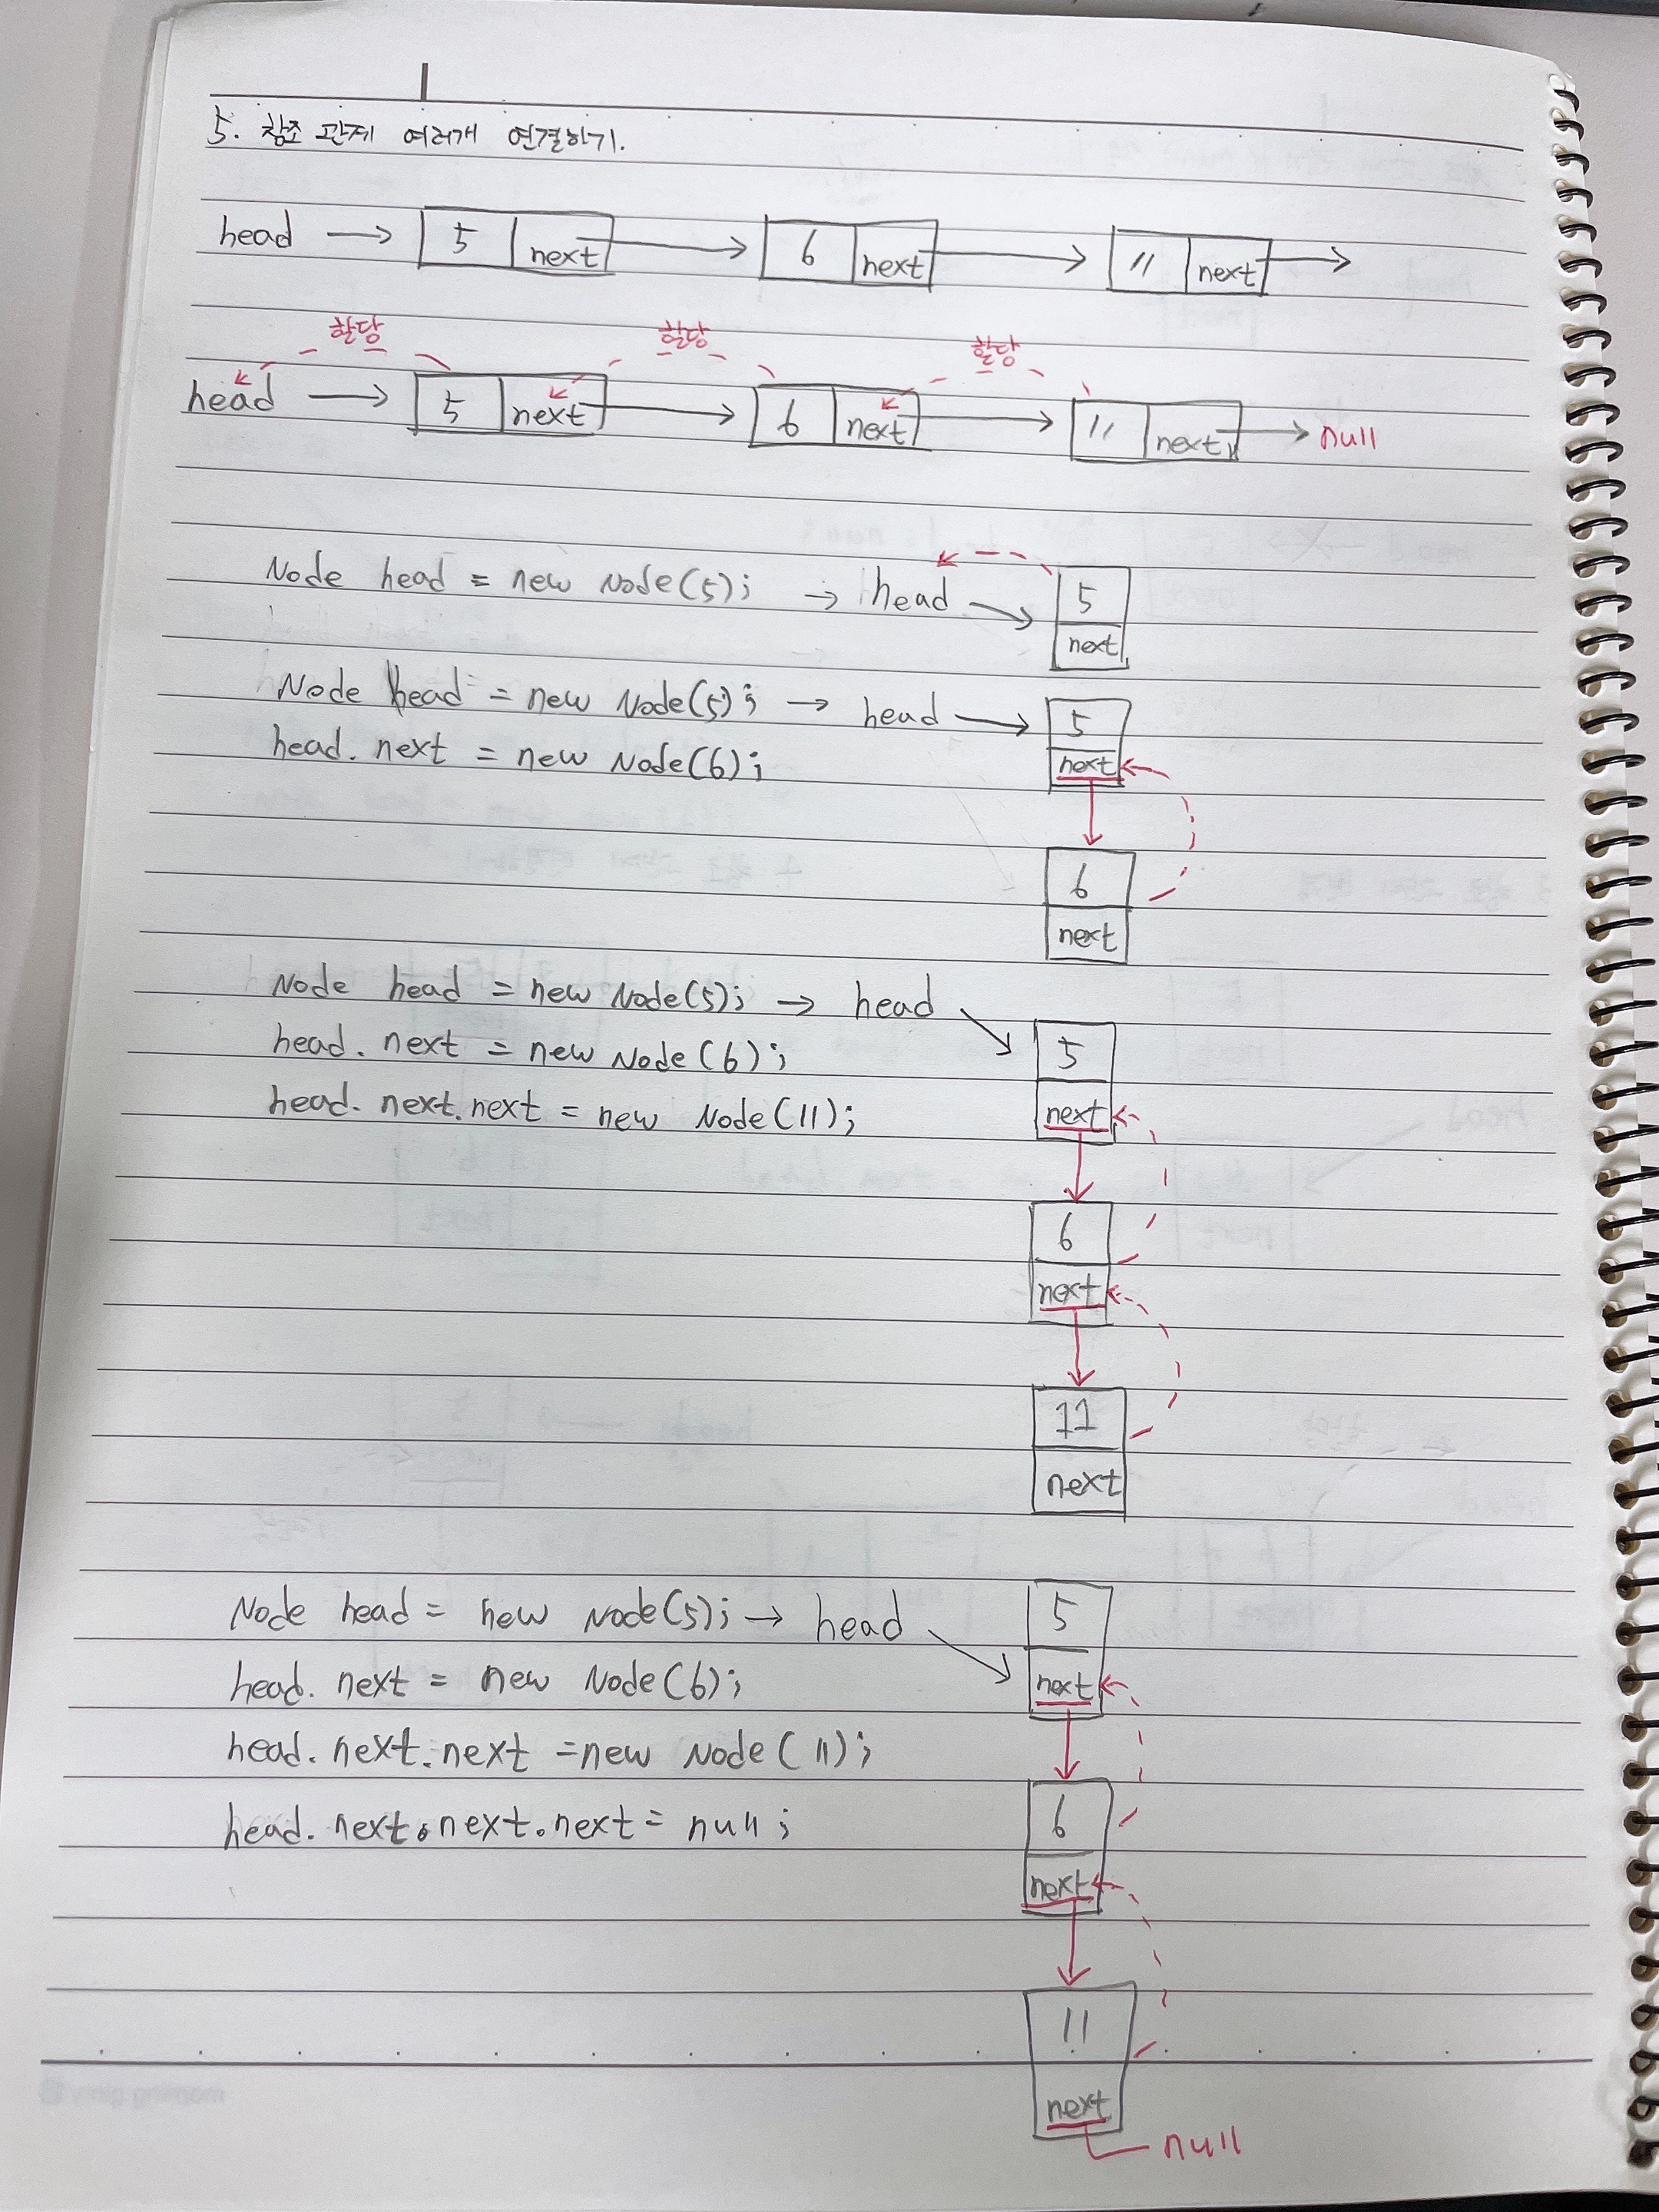 5. 참조 관계 여러개 연결하기.
head → 5 next → 6 next → 11 next →
할당 할당 할당
head → 5 next → 6 next → 11 next → null
Node head = new Node(5); → head → 5
next
Node head = new Node(5); → head → 5
head.next = new Node(6); next
6
next
Node head = new Node(5); → head
head.next = new Node(6); 5
head.next.next = new Node(11); next
6
next
11
next
Node head = new Node(5); → head 5
head.next = new Node(6); next
head.next.next = new Node(11);
head.next.next.next = null; 6
next
11
next
null